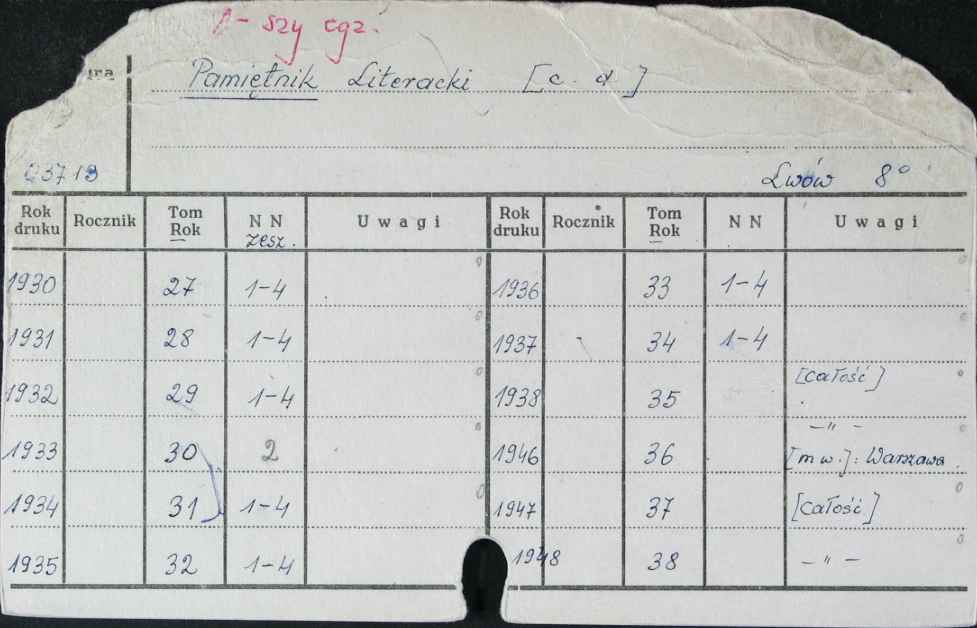 1-szy egz.
Pamiętnik Literacki [c. d]
03713
Lwów 8°
Rok druku Rocznik Tom Rok NN zesz. Uwagi Rok druku Rocznik Tom Rok NN Uwagi
1930 27 1-4 1936 33 1-4
1931 28 1-4 1937 34 1-4
1932 29 1-4 1938 35 [całość]
1933 30 2 1946 36 -"- [m w.]: Warszawa.
1934 31 1-4 1947 37 [całość]
1935 32 1-4 1948 38 -"-